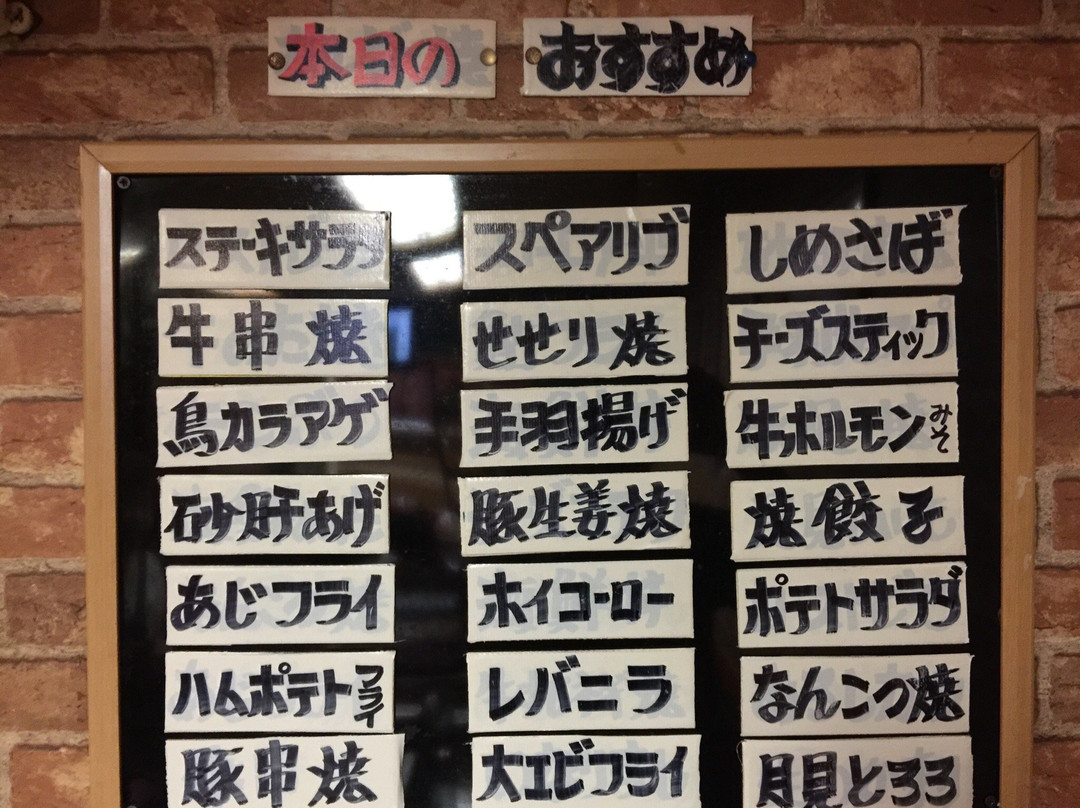 本日の おすすめ
ステーキサラダ
牛串焼
鳥カラアゲ
砂肝あげ
あじフライ
ハムポテトフライ
豚串焼
スペアリブ
せせり焼
手羽揚げ
豚生姜焼
ホイコーロー
レバニラ
大エビフライ
しめさば
チーズスティック
牛ホルモンみそ
焼餃子
ポテトサラダ
なんこつ焼
月見とろろ